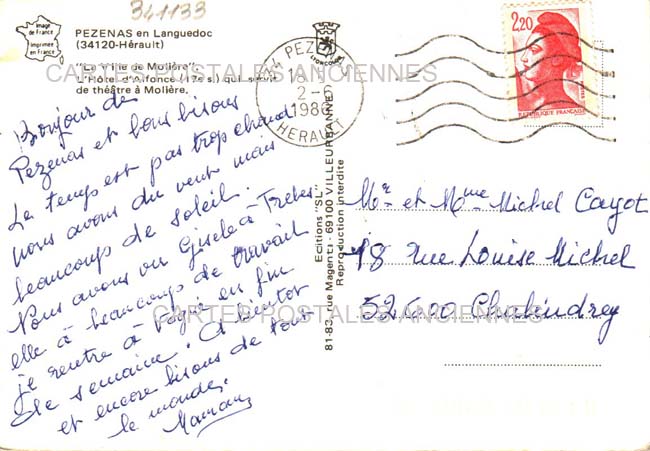 341133
Image de France
Imprimée en France
PEZENAS en Languedoc
(34120-Hérault)
"La Ville de Molière".
L'Hôtel d'Alfonce (17e s.) qui servit
de théâtre à Molière.
CARTES POSTALES ANCIENNES
34 PEZENAS
18H
2-6
1986
HERAULT
2,20
REPUBLIQUE FRANCAISE
Bonjour de
Pezenas et bons bisous
Le temps est pas trop chaud
nous avons du vent mais
beaucoup de soleil.
Nous avons vu Gisele à Trebes
elle à beaucoup de travail
je rentre à en fin
de semaine. A
et encore bisous de tout
le monde.
Editions "SL"
81-83, rue Magenta - 69100 VILLEURBANNE
Reproduction interdite
Mr et Mme Michel Cayot
18 rue Louise Michel
52600 Chalindrey
CARTES POSTALES ANCIENNES